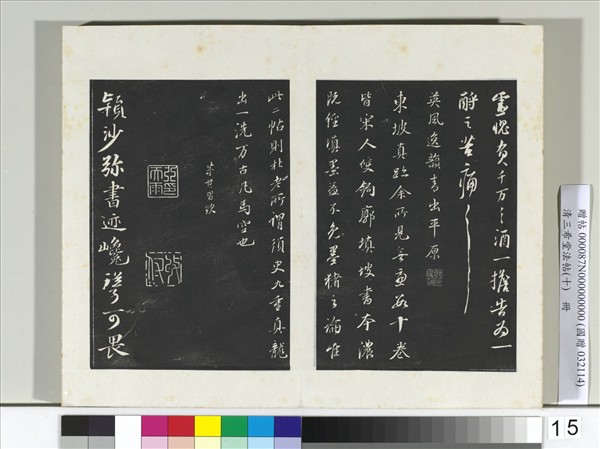 靈愧負千万々酒一擔告為一
酹之苦痛
英風逸韻高出平原
東坡真跡余所見無慮數十卷
皆宋人雙鉤廓填坡書本濃
既經填墨益不免墨猪之論唯
此二帖則杜老所謂須臾九重真龍
出一洗万古凡馬空也
董其昌跋
穎沙弥書迹巉聳可畏
贈帖 000087N000000000 (國贈 032114)
清三希堂法帖(十) 冊
15